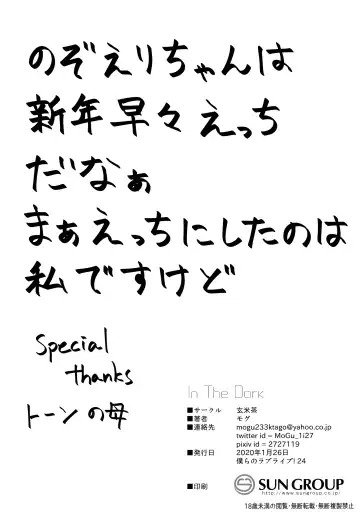 のぞえりちゃんは
新年早々えっち
だなぁ
まぁえっちにしたのは
私ですけど
Special
thanks
トーンの母
In The Dark
■サークル 玄米茶
■著者 モグ
■連絡先 mogu233ktago@yahoo.co.jp
twitter id = MoGu_1i27
pixiv id = 2727119
■発行日 2020年1月26日
僕らのラブライブ! 24
■印刷 SUN GROUP
http://www.sungroup.co.jp/
18歳未満の閲覧・無断転載・無断複製禁止